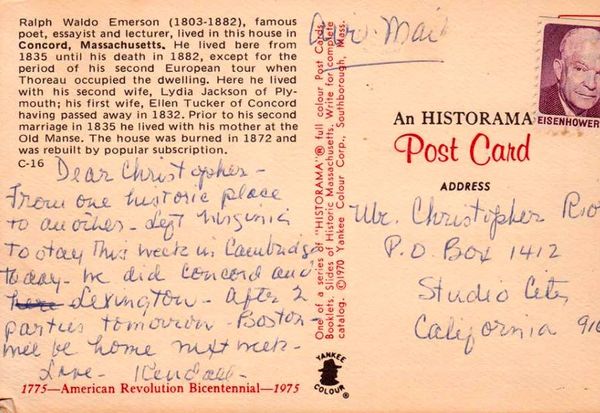 Ralph Waldo Emerson (1803-1882), famous
poet, essayist and lecturer, lived in this house in
Concord, Massachusetts. He lived here from
1835 until his death in 1882, except for the
period of his second European tour when
Thoreau occupied the dwelling. Here he lived
with his second wife, Lydia Jackson of Ply-
mouth; his first wife, Ellen Tucker of Concord
having passed away in 1832. Prior to his second
marriage in 1835 he lived with his mother at the
Old Manse. The house was burned in 1872 and
was rebuilt by popular subscription.
C-16
Dear Christopher -
From one historic place
to another - Left Virginia
to stay this week in Cambridge
today - we did Concord and
Lexington - After 2
parties tomorrow - Boston -
will be home next week -
Love - Kendall -
1775—American Revolution Bicentennial—1975
One of a series of "HISTORAMA"® full colour Post Cards,
Booklets, Slides of Historic Massachusetts. Write for complete
catalog. ©1970 Yankee Colour Corp., Southborough, Mass.
YANKEE
COLOUR
Air Mail
EISENHOWER
An HISTORAMA
Post Card
ADDRESS
Mr. Christopher
P.O. Box 1412
Studio City
California